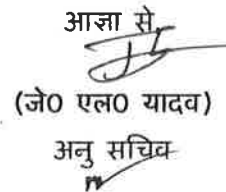 आज्ञा से
(जे0 एल0 यादव)
अनु सचिव